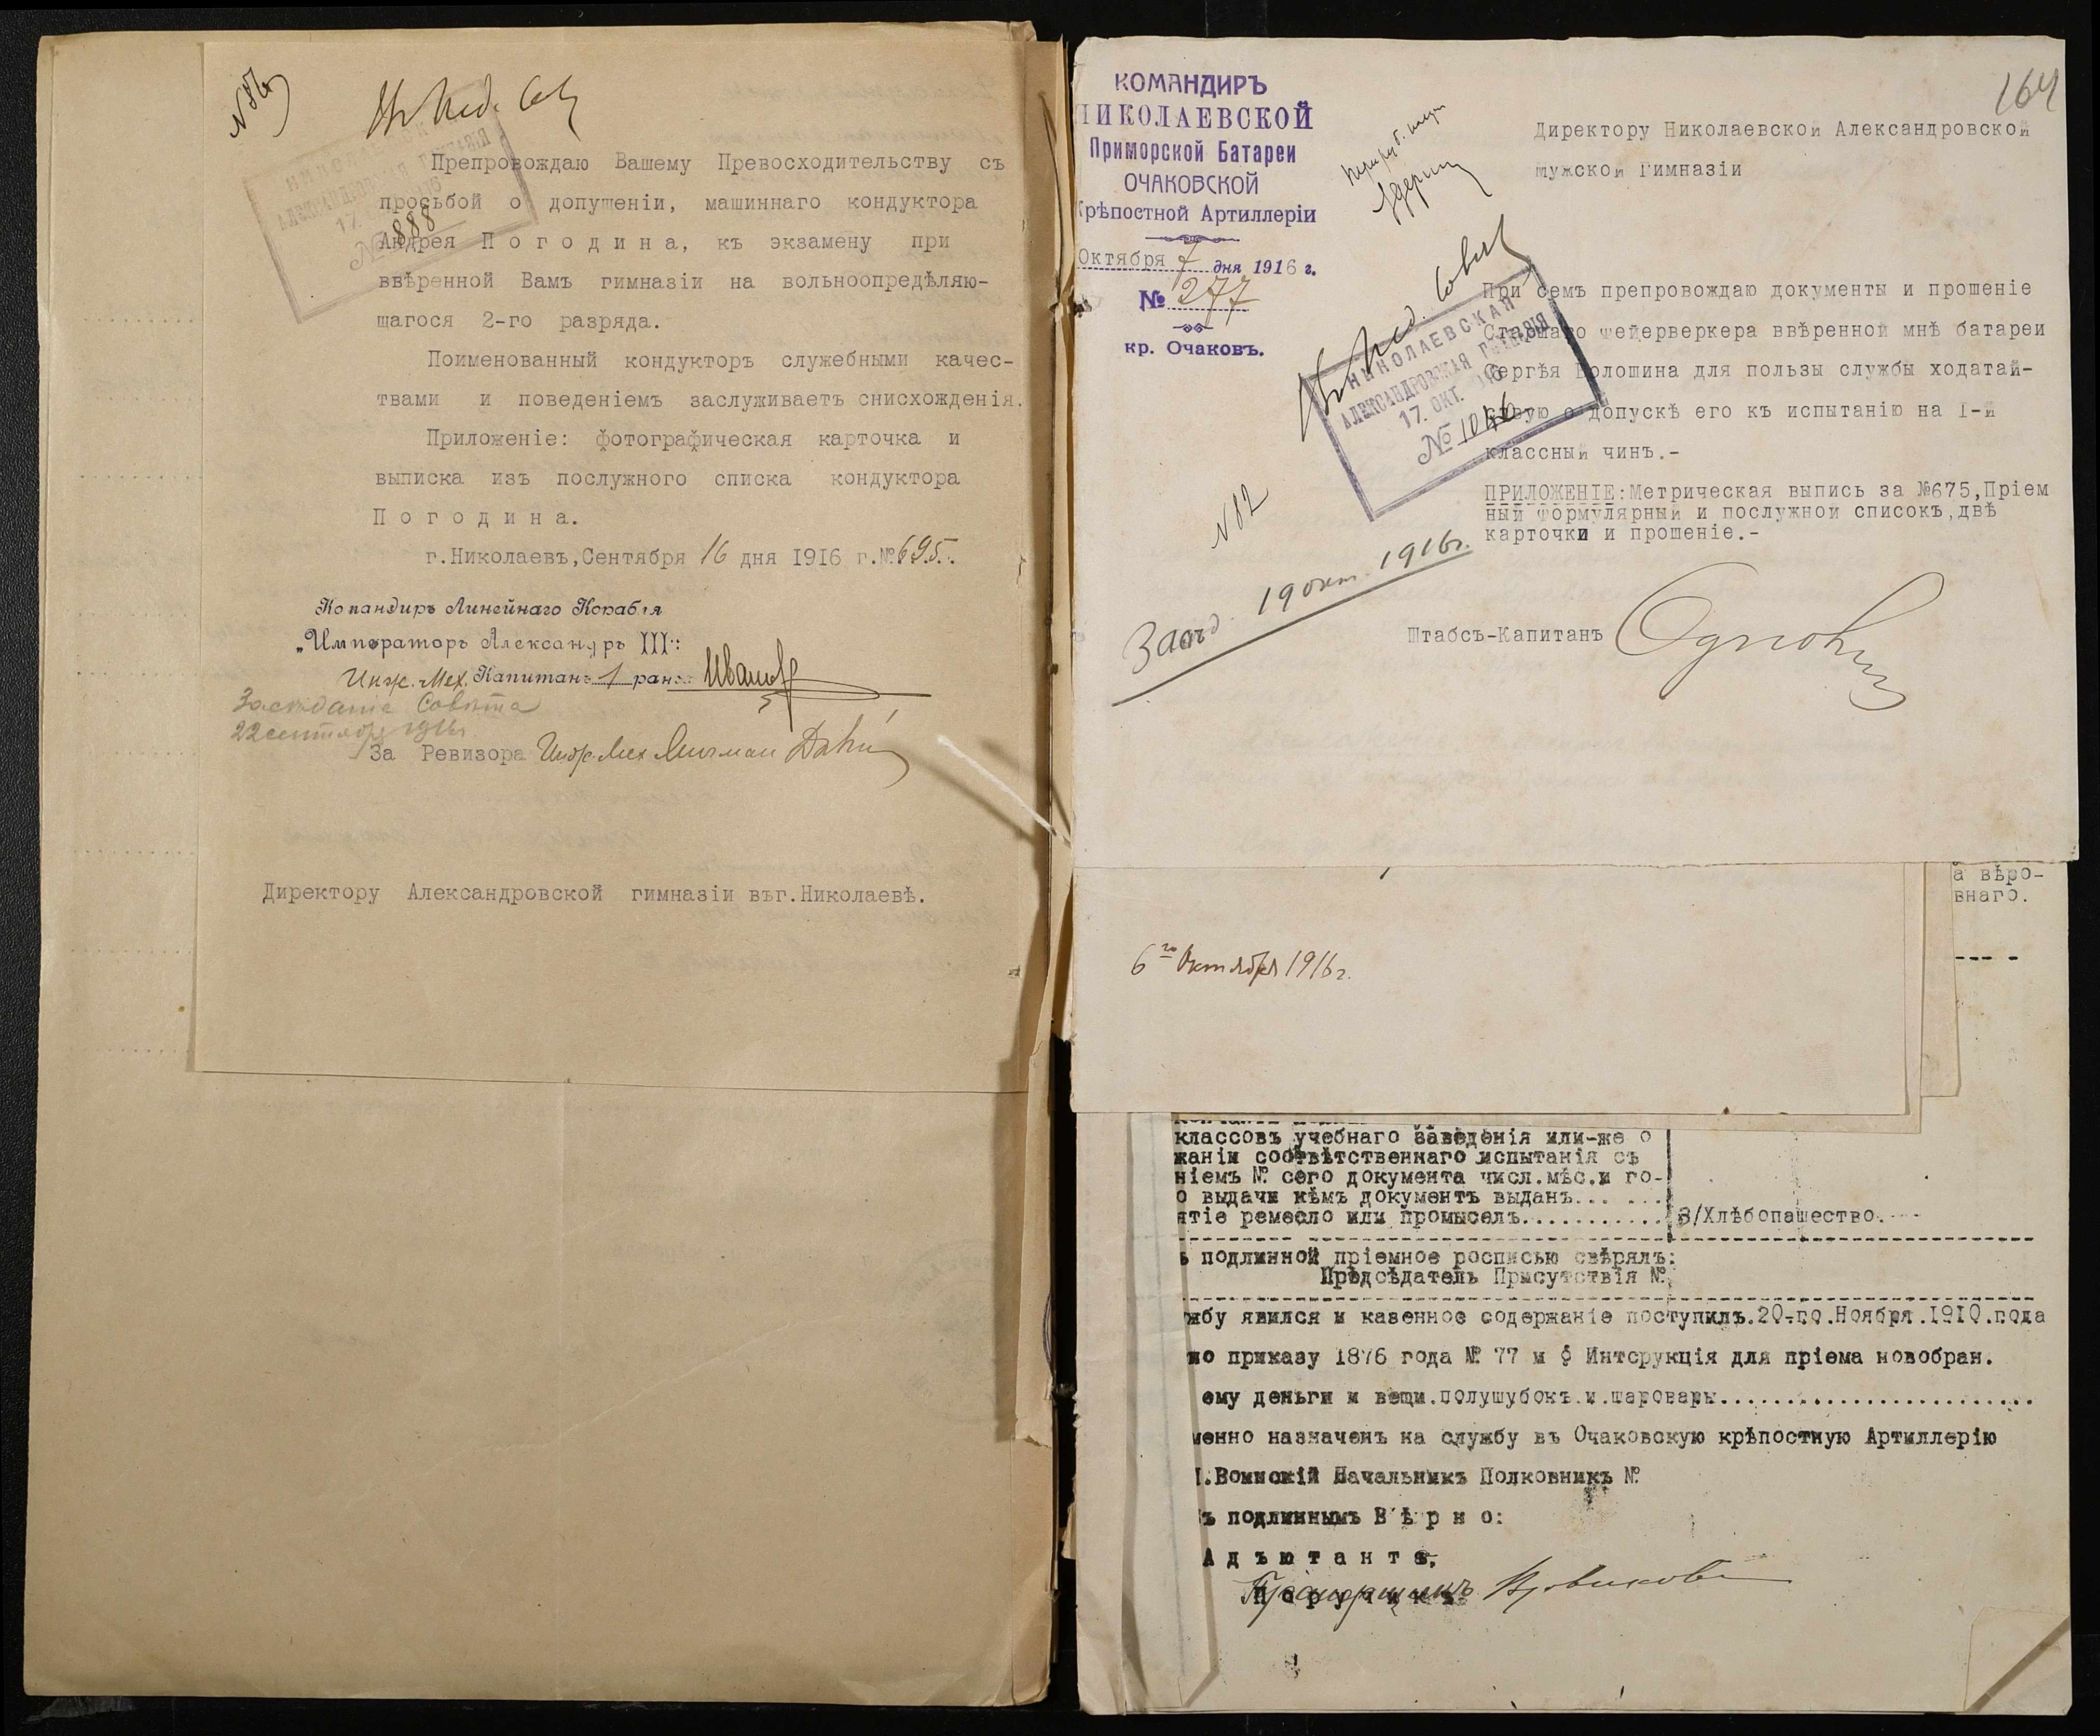 Въ Пед. Сов
Препровождаю Вашему Превосходительству съ
просьбой о допущеніи, машиннаго кондуктора
888
Андрея Погодина, къ экзамену при
ввѣренной Вамъ гимназіи на вольноопредѣляю-
щагося 2-го разряда.
Поименованный кондукторъ служебными качес-
твами и поведеніемъ заслуживаетъ снисхожденія.
Приложеніе: фотографическая карточка и
выписка изъ послужного списка кондуктора
Погодина.
г.Николаевъ,Сентября 16 дня 1916 г.№695.
Командиръ Линейнаго Корабля
„Императоръ Александръ III":
Инж. Мех. Капитанъ 1 ранга Ивановъ
Засѣданіе Совѣта
22 сентября 1916г.
За Ревизора Инж. Мех Мичман
Директору Александровской гимназіи въг.Николаевѣ.
164
КОМАНДИРЪ
НИКОЛАЕВСКОЙ
Приморской Батареи
ОЧАКОВСКОЙ
Крѣпостной Артиллеріи
Октября 7 дня 1916 г.
№ 277
кр. Очаковъ.
Директору Николаевской Александровской
мужской гимназіи
Въ Пед. Совѣтъ
НИКОЛАЕВСКАЯ
АЛЕКСАНДРОВСКАЯ ГИМНАЗІЯ
17. ОКТ. 1916
№ 1046
При семъ препровождаю документы и прошеніе
Старшаго фейерверкера ввѣренной мнѣ батареи
Сергѣя Волошина для пользы службы ходатай-
ствую о допускѣ его къ испытанію на I-й
классный чинъ.-
ПРИЛОЖЕНІЕ:Метрическая выпись за №675,Пріем
ный формулярный и послужной списокъ,двѣ
карточки и прошеніе.-
N 12
Засѣд. 19 окт. 1916г.
Штабсъ-Капитанъ
а вѣро-
внаго.
6го Октября 1916 г.
классовъ учебнаго заведенія или-же о
жаніи соотвѣтственнаго испытанія съ
ніемъ № сего документа числ.мѣс.и го-
о выдачи кѣмъ документъ выданъ... ...
ятіе ремесло или промыселъ............ 3/Хлѣбопашество.
ъ подлинной пріемное росписью свѣрялъ:
Предсѣдатель Присутствія №
жбу явился и казенное содержаніе поступилъ.20-го.Ноября.1910.года
но приказу 1876 года № 77 и § Интсрукція для пріема новобран.
ему деньги и вещи.полушубокъ.и.шаровары........................
менно назначенъ на службу въ Очаковскую крѣпостную Артиллерію
.Воинскій Начальникъ Полковникъ №
ъ подлиннымъ Вѣрно:
Адъютантъ,
Прапорщикъ Новиковъ
Поручикъ